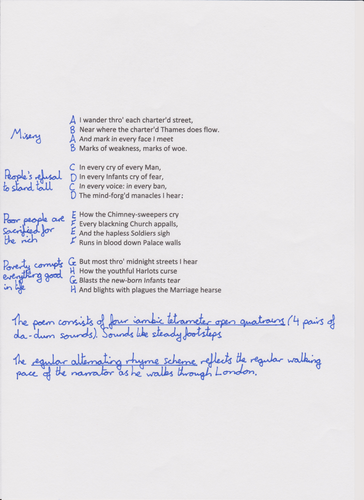 A I wander thro' each charter'd street,
B Near where the charter'd Thames does flow.
Misery A And mark in every face I meet
B Marks of weakness, marks of woe.
People's refusal C In every cry of every Man,
to stand tall D In every Infants cry of fear,
C In every voice: in every ban,
D The mind-forg'd manacles I hear:
Poor people are E How the Chimney-sweepers cry
sacrificed for F Every blackning Church appalls,
the rich E And the hapless Soldiers sigh
F Runs in blood down Palace walls
Poverty corrupts G But most thro' midnight streets I hear
everything good H How the youthful Harlots curse
in life G Blasts the new-born Infants tear
H And blights with plagues the Marriage hearse
The poem consists of four iambic tetrameter open quatrains (4 pairs of
da-dum sounds). Sounds like steady footsteps
The regular alternating rhyme scheme reflects the regular walking
pace of the narrator as he walks through London.